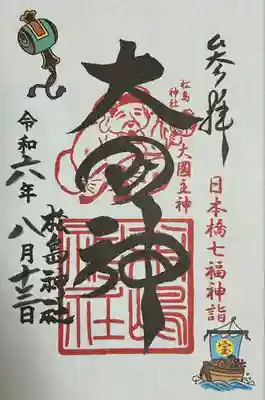 参拝
日本橋七福神詣
松島
神社
大國主神
大国神
松島
神社
令和六年
八月十三日
松島神社
宝